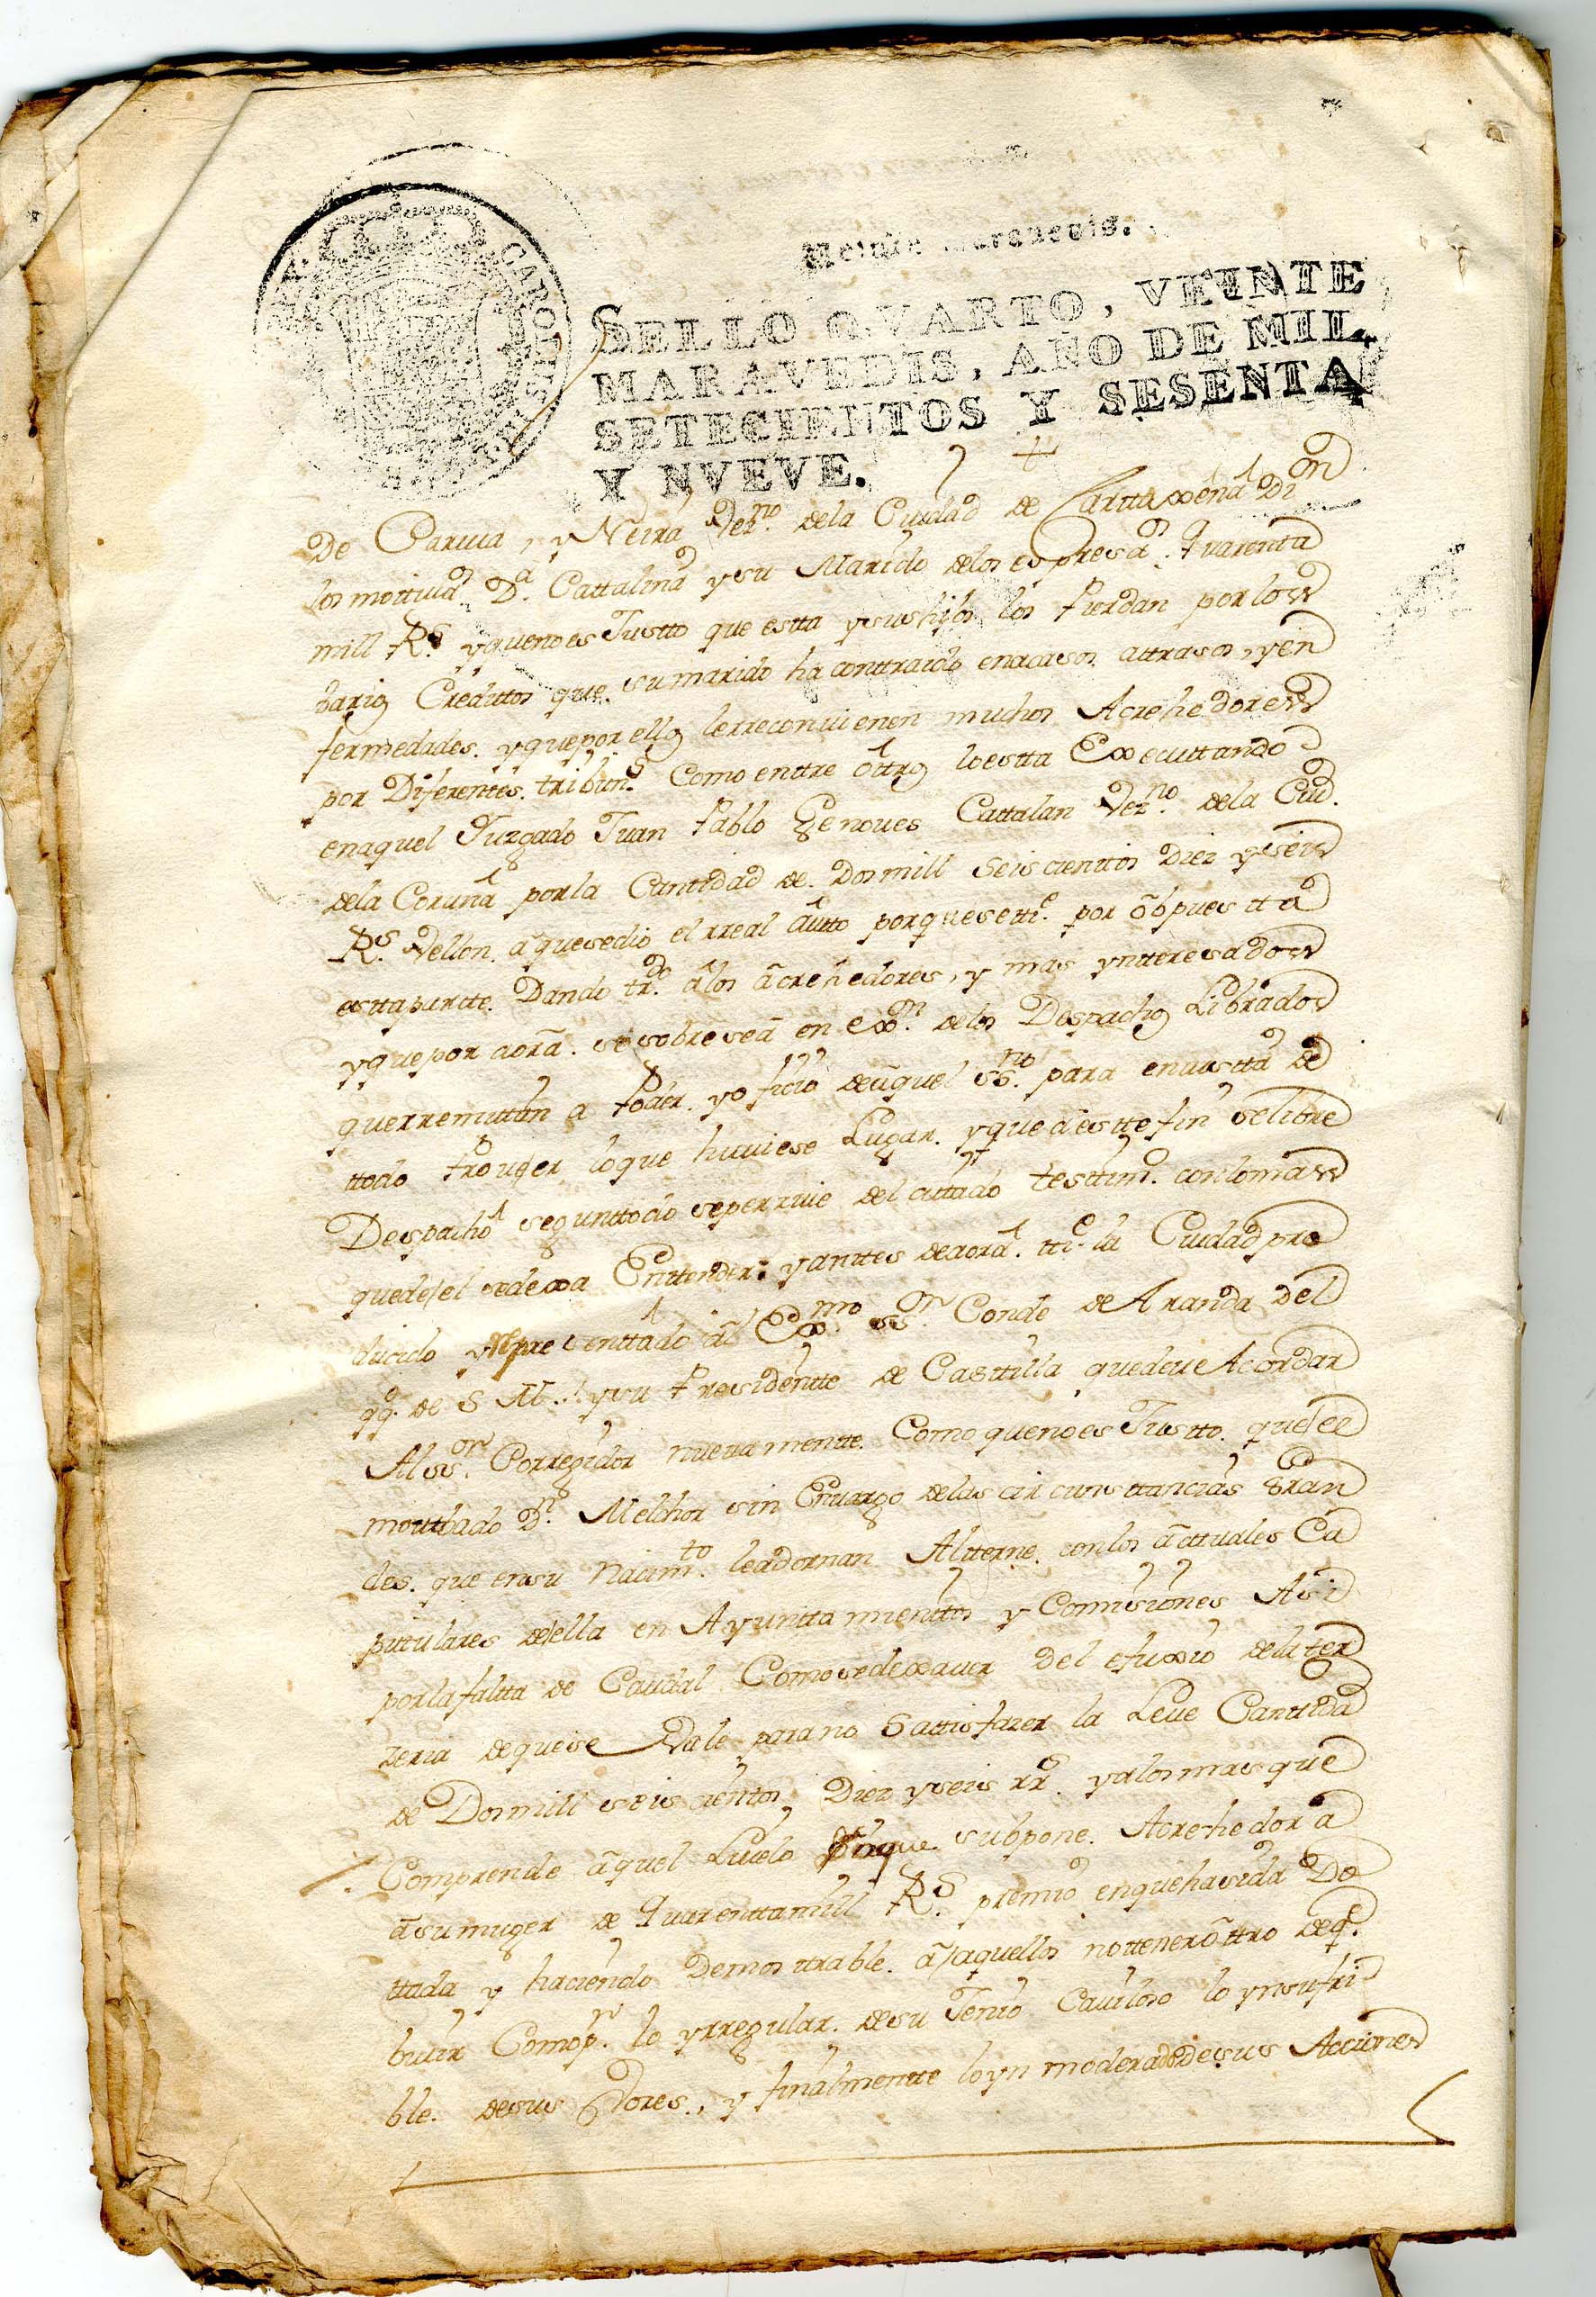 Veinte maravedis.
SELLO QVARTO, VEINTE
MARAVEDIS, AÑO DE MIL
SETECIENTOS Y SESENTA
Y NVEVE.
CAROLUS
De Parcia, y Neira Vezno. dela Ciudad de Carttaxena Dion
los mottivado. Da. Cattalina y su Marido delos expresado. Quarenta
mill Rs. yqueno es Justto que estta ysus hijos los Pierdan por los
barios Creditos que su marido ha conttraido enacasos attrasos, yen
fermedades. yquepor ellos lerreconvienen muchos Acrehedores
por Diferentes. tribuns. Como enttre ôttros loestta Executtando
enaquel Juzgado Juan Pablo Genoves Cattalan Vezno. dela Ciud.
dela Coruña por la Cantidad de Dos mill Seiscienttos Diez y seis
Rs. Vellon. a que sedio el rreal autto porquesette. por ôbpuestta
esttapartte. Dando trdo. â los âcrehedores, y mas yntteresados
yquepor aora. se sobresea en exon. delos Despachos Librados
querremittan a Poder. yoficio deaquel ssno. para envistta de
ttodo Probeer loque huviese Lugar. yque a estte fin selibre
Despacho segunttodo seperzive del cittado testtimo. conlomas
quedeel sedexa Enttender: yanttes deaora. tte. la Ciudad pro
ducido y Representtado âl Exmo. ssor. Conde de Aranda del
qo. de S M. y su Presidentte de Casttilla quedeve Acordar
Al ssor. Corregidor nuevamentte. Como queno es Justto. queel
mottbado Dn. Melchor sin Envargo delas circunsttancias Gran
des. que ensu Nacimto. leadornan Altterne. conlos âctuales Ca
pittulares deella en Ayunttamienttos y Comisiones Asi
porlafaltta de Caudal Comosedexaver del efuxio delatter
zeria dequese Vale parano Sattisfazer la Leve Canttida
de Dosmill seiscienttos Diez yseis rrs. yalosmasque
Comprende âquel Luelo Porque subpone. Acrehedora
âsumuger de Quarenttamill Rs. premio enquehasida Do
ttada y haciendo Demosttrable. â aquellos nottenerôttro deqe.
buir Comop. lo yrregular. desu Jenio Caviloso lo ynsufri
ble. desus Dores., y finalmentte loyn moderadodesus Acciones